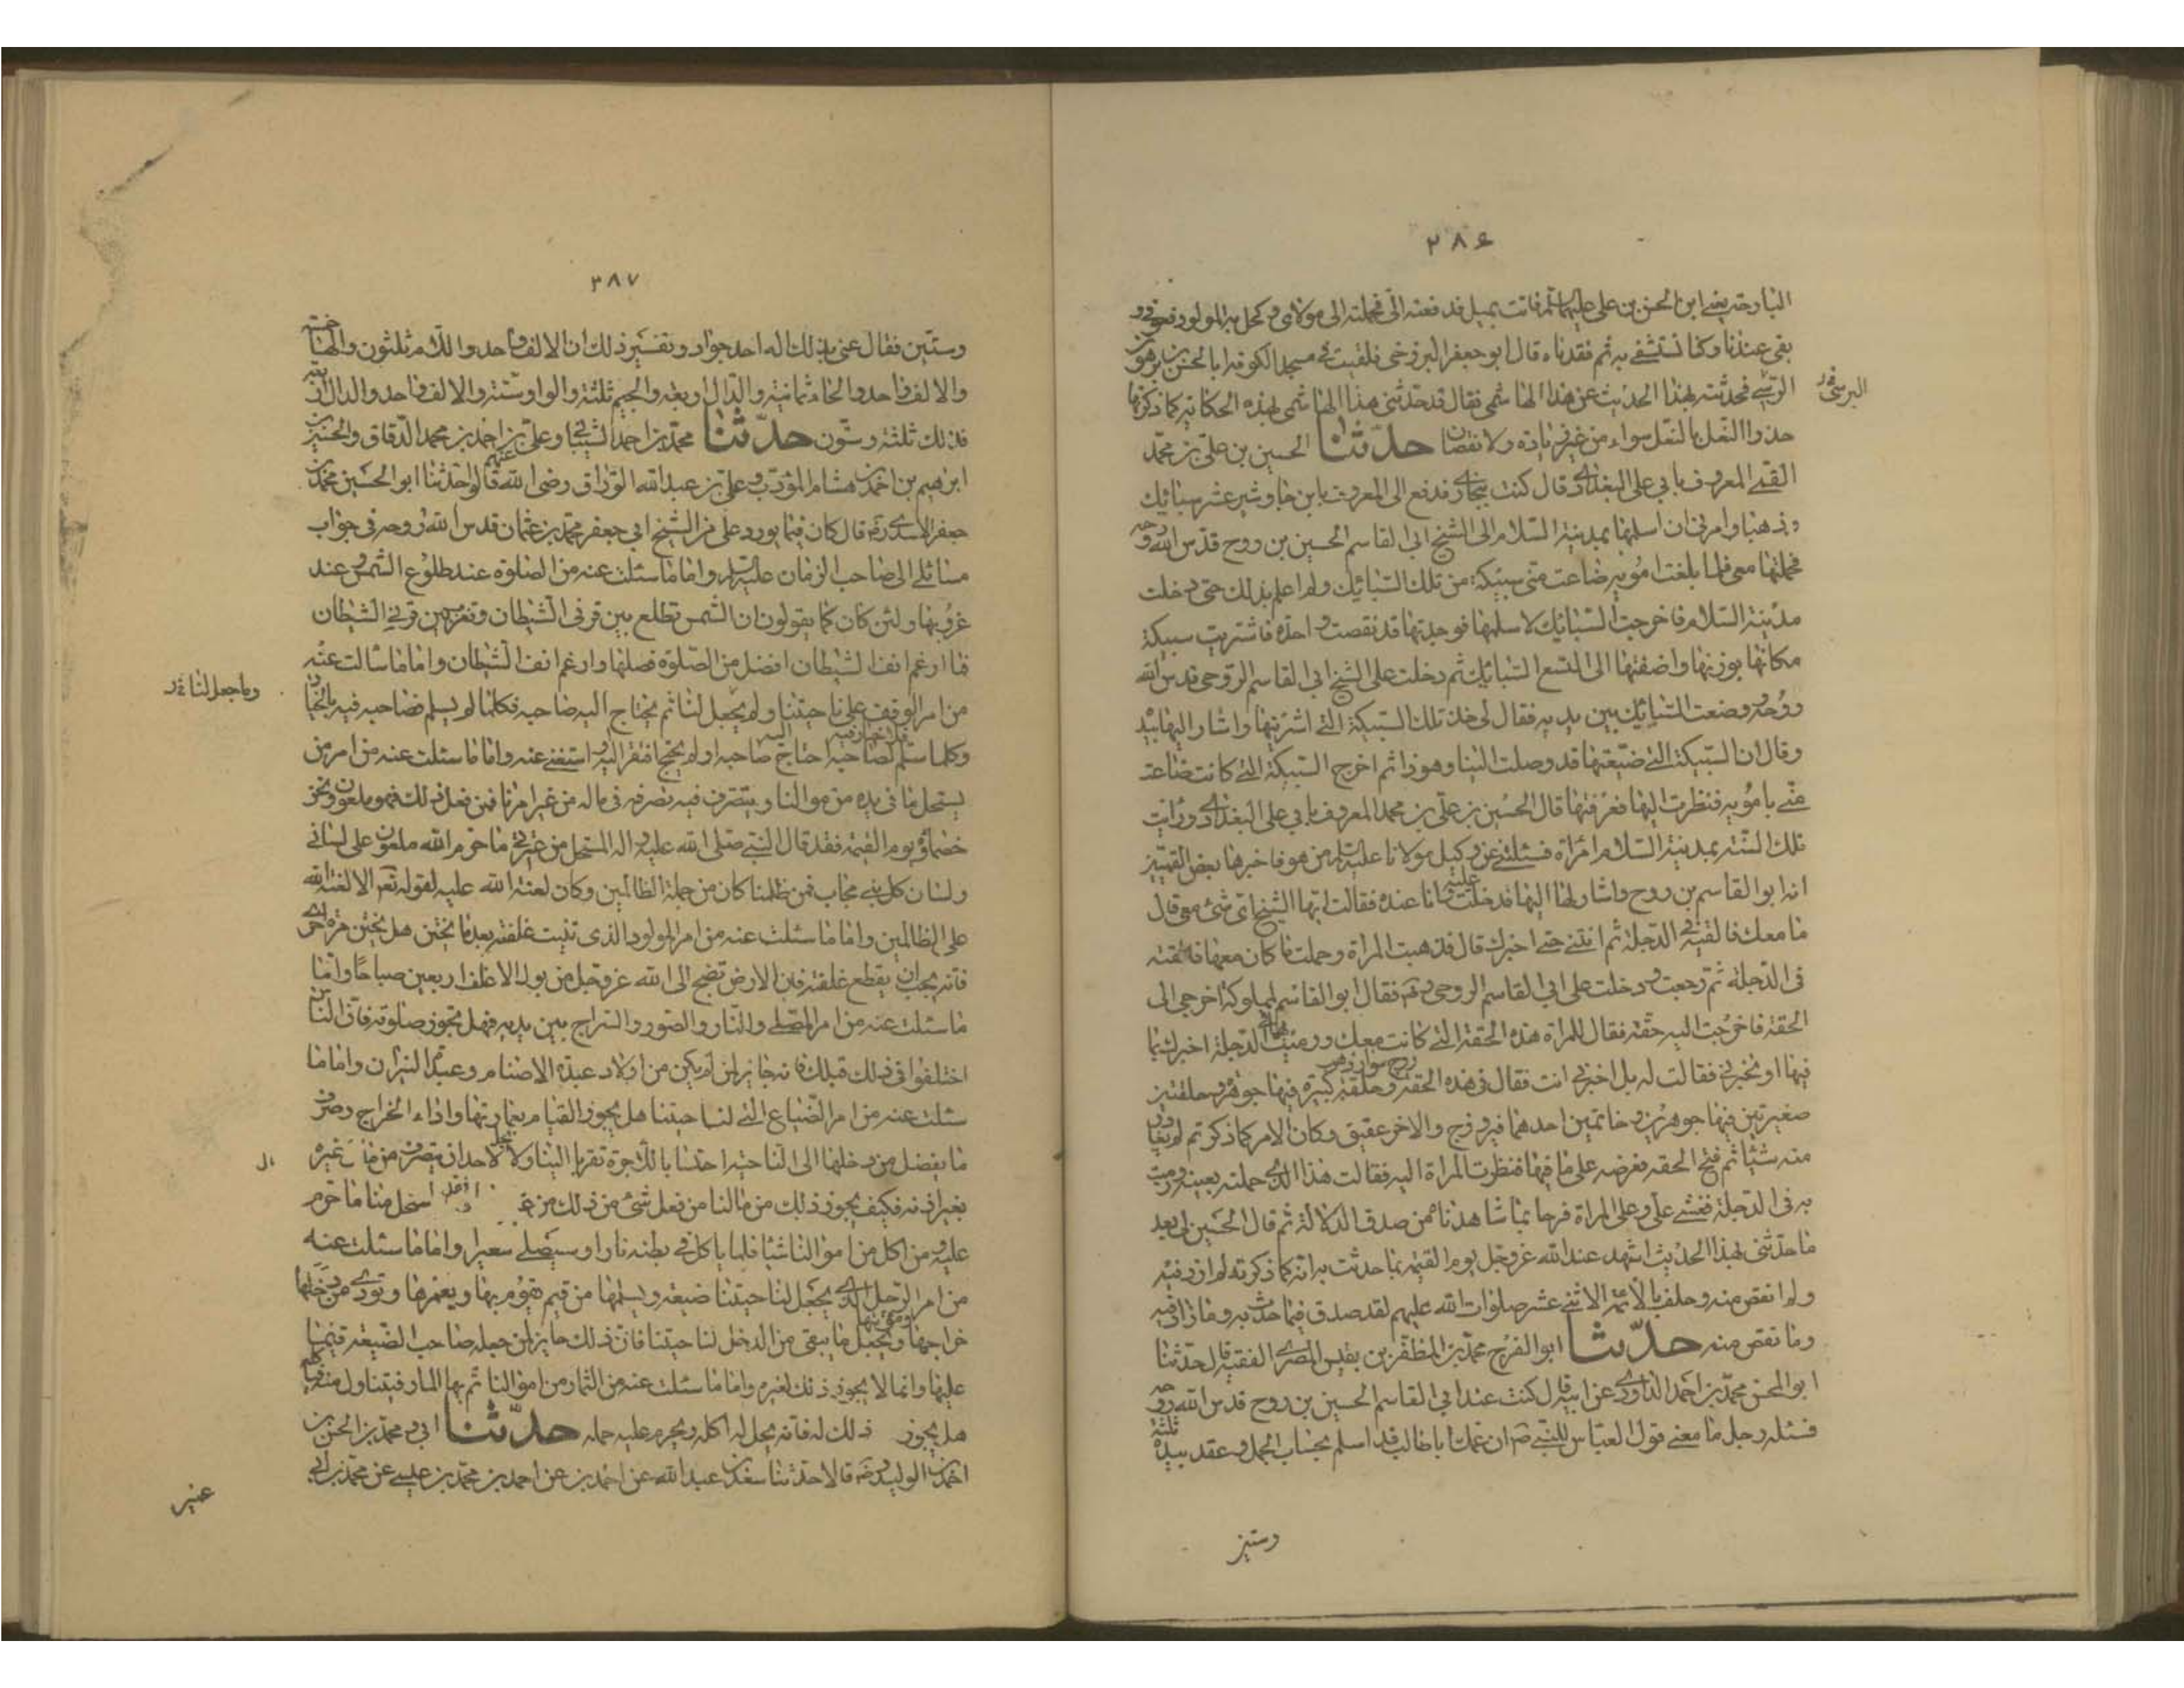 ٣٨٦
البارحة يعني ابن الحسن بن علي عليهما السلم فاتت بميل فدفعته الى فحملته الى مولاتي وكحل به المولود
بقى عندنا وكنا نستشفي به ثم فقدناه قال ابو جعفر البزوفي فلقيت في مسجد الكوفة ابا الحسن بن برهون
البرسي فحدثته بهذا الحديث عن هذا الهاشمي فقال قد حدثني هذا الهاشمي بهذه الحكاية كما ذكرتها
حذو النعل بالنعل سواء من غير زيادة ولا نقصان حدّثنا الحسين بن علي بن محمد
القمي المعروف بابي علي البغدادي قال كنت ببخارى فدفع الى المعروف بابن جاوشير عشر سبائك
ذهبا وامرني ان اسلمها بمدينة السلام الى الشيخ ابي القاسم الحسين بن روح قدس الله روحه
فحملتها معي فلما بلغت امويه ضاعت مني سبيكة من تلك السبائك ولم اعلم بذلك حتى دخلت
مدينة السلام فاخرجت السبائك لاسلمها فوجدتها قد نقصت واحدة فاشتريت سبيكة
مكانها بوزنها واضفتها الى التسع السبائك ثم دخلت على الشيخ ابي القاسم الروحي قدس الله
روحه ووضعت السبائك بين يديه فقال لي خذ تلك السبيكة التي اشتريتها واشار اليها بيده
وقال ان السبيكة التي ضيعتها قد وصلت الينا وهو ذا ثم اخرج السبيكة التي كانت ضاعت
مني بامويه فنظرت اليها فعرفتها قال الحسين بن علي بن محمد المعروف بابي علي البغدادي ورايت
تلك السنة بمدينة السلام امراة فسئلتني عن وكيل مولانا عليه السلم من هو فاخبرها بعض القميين
انه ابو القاسم بن روح واشار لها اليها فدخلت عليه وانا عنده فقالت ايها الشيخ اي شئ معي قال
ما معك فالقيه في الدجلة ثم ائتني حتى اخبرك قال فذهبت المراة وحملت ما كان معها فالقته
في الدجلة ثم رجعت ودخلت على ابي القاسم الروحي فقال ابو القاسم لمملوكة اخرجي الى
الحقة فاخرجت اليه حقة فقال للمراة هذه الحقة التي كانت معك ورميت بها في الدجلة اخبرك بما
فيها او تخبريني فقالت له بل اخبرني انت فقال في هذه الحقة زوج سوار ذهب وحلقة كبيرة فيها جوهرة وحلقتين
صغيرتين فيها جوهر وخاتمين احدهما فيروزج والاخر عقيق وكان الامر كما ذكر ثم لم يغادر
منه شيئا ثم فتح الحقة فعرض على ما فيها فنظرت المراة اليه فقالت هذا الذي حملته بعينه ورميت
به في الدجلة فغشي علي وعلى المراة فرحا بما شاهدناه من صدق الدلالة ثم قال الحسين لي بعد
ما حدثني بهذا الحديث اشهد عند الله عز وجل يوم القيمة بما حدثت به انه كما ذكرته لم ازد فيه
ولم انقص منه وحلف بالائمة الاثني عشر صلوات الله عليهم لقد صدق فيما حدث به وما زاد فيه
وما نقص منه حدّثنا ابو الفرج محمد بن المظفر بن نفيس المصري الفقيه قال حدثنا
ابو الحسن محمد بن احمد الداودي عن ابيه قال كنت عند ابي القاسم الحسين بن روح قدس الله روحه
فسئله رجل ما معنى قول العباس للنبي ص ان عمك ابا طالب قد اسلم بحساب الجمل وعقد بيده ثلثة
وستين
٣٨٧
وستين فقال عنى بذلك اله احد جواد وتفسير ذلك ان الالف واحد واللام ثلثون والهاء خمسة
والالف واحد والحاء ثمانية والدال اربعة والجيم ثلثة والواو ستة والالف واحد والدال اربعة
فذلك ثلثة وستون حدّثنا محمد بن احمد الشيباني وعلي بن احمد بن محمد الدقاق والحسين بن
ابرهيم بن احمد بن هشام المؤدب وعلي بن عبد الله الوراق رضي الله عنهم قالوا حدثنا ابو الحسين محمد بن
جعفر الاسدي رض قال كان فيما يورد علي من الشيخ ابي جعفر محمد بن عثمان قدس الله روحه في جواب
مسائلي الى صاحب الزمان عليه السلم واما ما سئلت عنه من الصلوة عند طلوع الشمس وعند
غروبها ولئن كان كما يقولون ان الشمس تطلع بين قرني الشيطان وتغرب بين قرني الشيطان
فما ارغم انف الشيطان افضل من الصلوة فصلها وارغم انف الشيطان واما ما سالت عنه
من امر الوقف على ناحيتنا وما يجعل لنا ثم يحتاج اليه صاحبه فكلما لم يسلم فصاحبه فيه بالخيار
وما جعل لنا
وكلما سلم فلا خيار فيه لصاحبه احتاج اليه صاحبه او لم يحتج افتقر اليه او استغنى عنه واما ما سئلت عنه من امر من
يستحل ما في يده من اموالنا ويتصرف فيه تصرفه في ماله من غير امرنا فمن فعل ذلك فهو ملعون ونحن
خصماؤه يوم القيمة فقد قال النبي صلى الله عليه واله المستحل من عترتي ما حرم الله ملعون على لساني
ولسان كل نبي مجاب فمن ظلمنا كان من جملة الظالمين وكان لعنة الله عليه لقوله تعالى الا لعنة الله
على الظالمين واما ما سئلت عنه من امر المولود الذي تنبت غلفته بعد ما يختن هل يختن مرة اخرى
فانه يجب ان يقطع غلفته فان الارض تضج الى الله عز وجل من بول الاغلف اربعين صباحا واما
ما سئلت عنه من امر المصلي والنار والصور والسراج بين يديه فهل يجوز صلوته فان الناس
اختلفوا في ذلك قبلك فانه جائز لمن لم يكن من اولاد عبدة الاصنام وعبدة النيران واما ما
سئلت عنه من امر الضياع التي لناحيتنا هل يجوز القيام بعمارتها واداء الخراج وصرف
ما يفضل من دخلها الى الناحية احتسابا للاجر وتقربا الينا فلا يحل لاحد ان يتصرف من مال غيره
بغير اذنه فكيف يجوز ذلك من مالنا من فعل شئ من ذلك من غير استحل منا ما حرم
عليه ومن اكل من اموالنا شيئا فانما ياكل في بطنه نارا وسيصلى سعيرا واما ما سئلت عنه
من امر الرجل الذي يجعل لناحيتنا ضيعة ويسلمها من قيم يقوم بها ويعمرها ويؤدي من دخلها
خراجها ومؤنتها ويجعل ما يبقى من الدخل لناحيتنا فان ذلك جايز لمن جعله صاحب الضيعة قيما
عليها وانما لا يجوز ذلك لغيره واما ما سئلت عنه من الثمار من اموالنا ثم بها المار فيتناول منه
هل يجوز ذلك له فانه يحل له اكله ويحرم عليه حمله حدّثنا ابي ومحمد بن الحسن بن
احمد بن الوليد رض قالا حدثنا سعد بن عبد الله عن احمد بن محمد بن عيسى عن محمد بن ابي
عمير